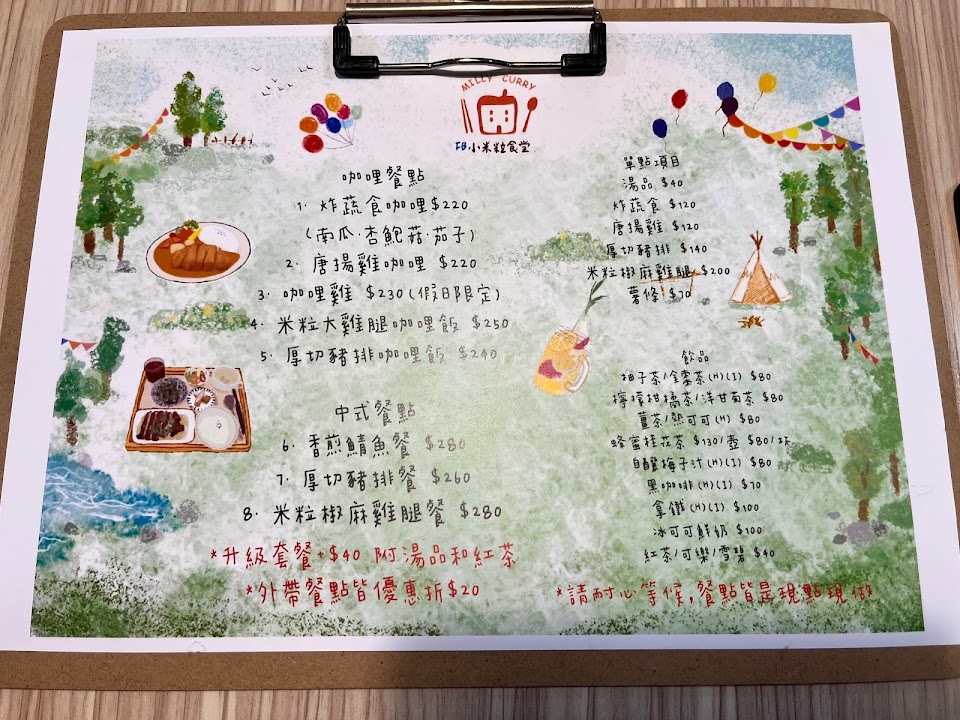 MILLY CURRY
FB小米粒食堂
咖哩餐點
1. 炸蔬食咖哩$220
(南瓜·杏鮑菇·茄子)
2. 唐揚雞咖哩 $220
3. 咖哩雞 $230(假日限定)
4. 米粒大雞腿咖哩飯 $250
5. 厚切豬排咖哩飯 $240
中式餐點
6. 香煎鯖魚餐 $280
7. 厚切豬排餐 $260
8. 米粒椒麻雞腿餐 $280
*升級套餐+$40 附湯品和紅茶
*外帶餐點皆優惠折$20
單點項目
湯品 $40
炸蔬食 $120
唐揚雞 $120
厚切豬排 $140
米粒椒麻雞腿 $200
薯條 $70
飲品
柚子茶/金棗茶(H)(I) $80
檸檬柑橘茶/洋甘菊茶 $80
薑茶/熱可可(H) $80
蜂蜜桂花茶 $130/壺 $80/杯
自釀梅子汁(H)(I) $80
黑咖啡(H)(I) $70
拿鐵(H)(I) $100
冰可可鮮奶 $100
紅茶/可樂/雪碧 $40
*請耐心等候,餐點皆是現點現做